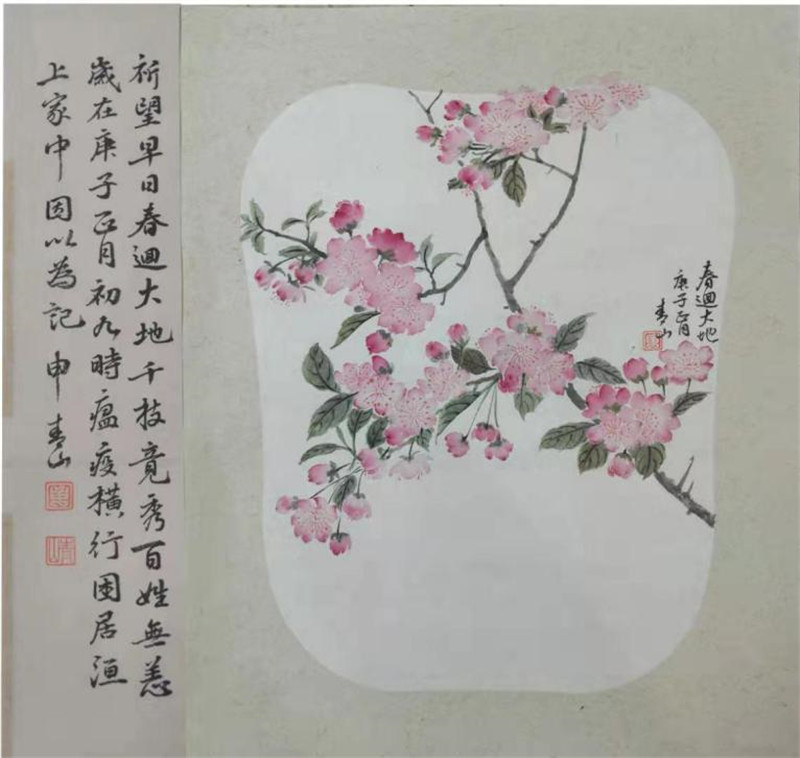 春迴大地
庚子正月
青山
祈望早日春迴大地千枝竟秀百姓無恙
歲在庚子正月初九時瘟疫橫行困居洹
上家中因以為記 申青山
青山